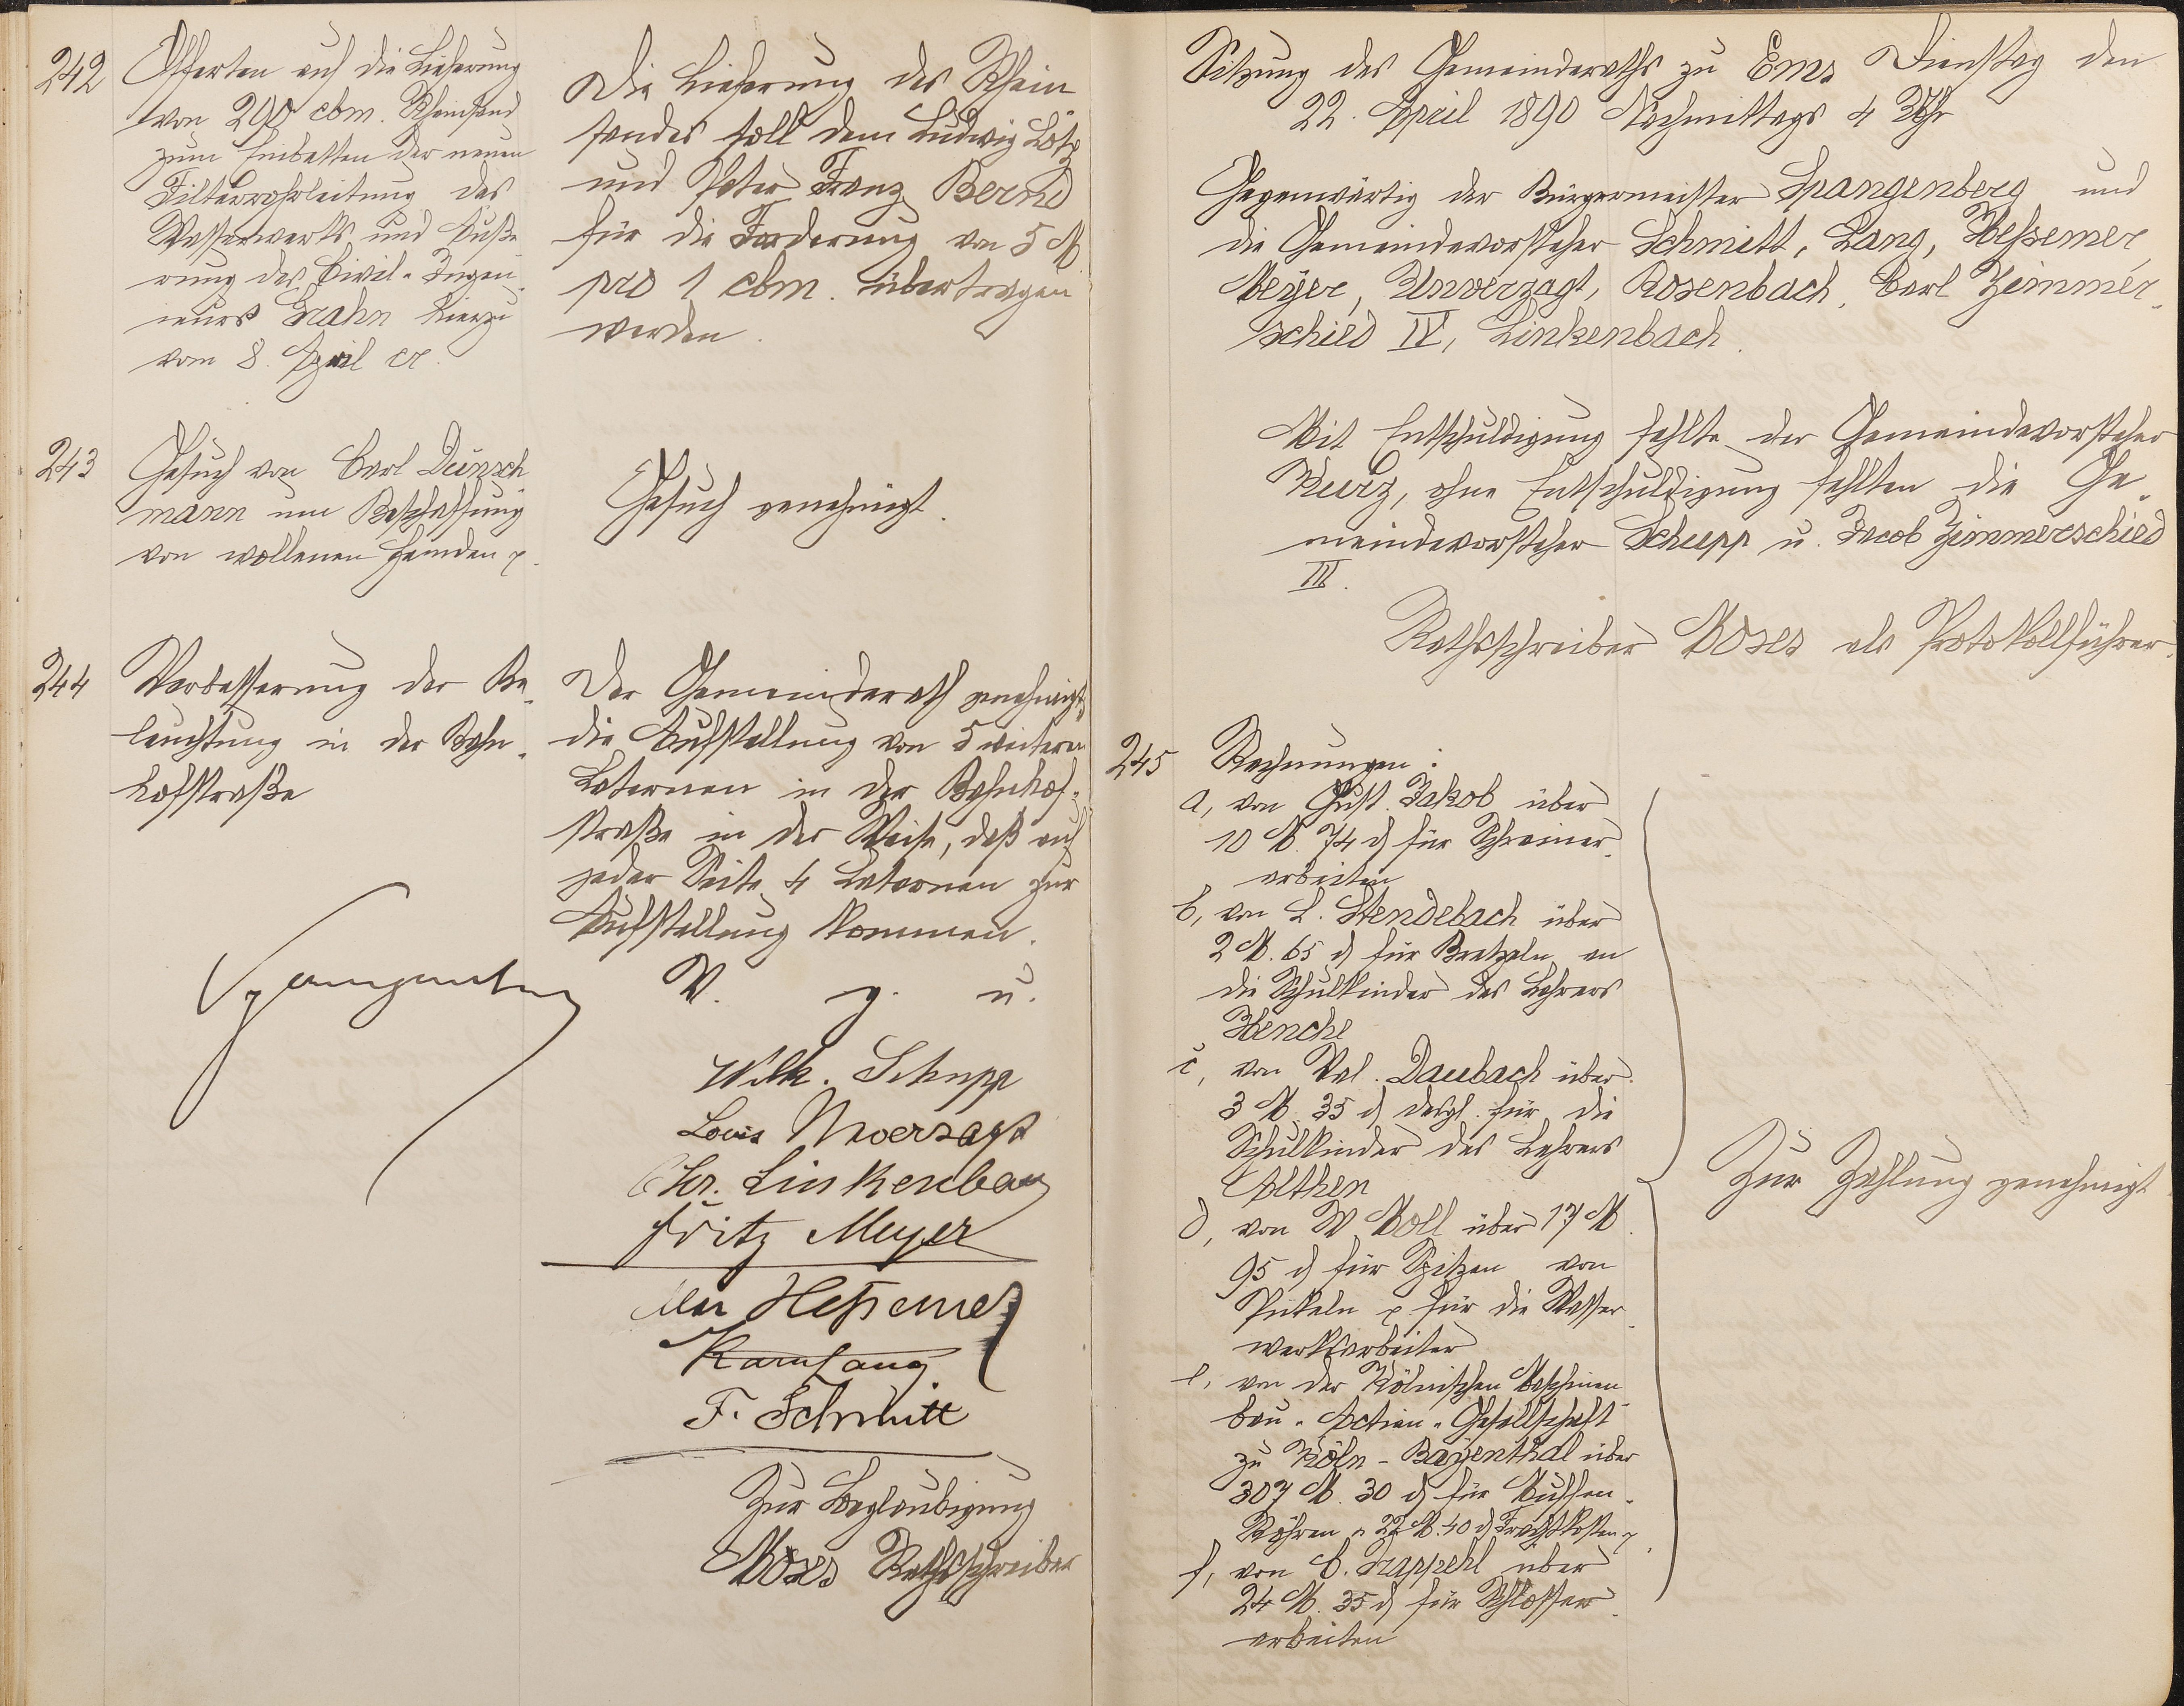 242
Offerten auf die Lieferung
von 200 cbm. Rheinsand
zum Einbetten der neuen
Filterrohrleitung des
Wasserwerks und Äuße-
rung des Civil-Ingeni-
eurs Grahn hierzu
vom 8. April cr.
Die Lieferung des Rhein
sandes soll dem Ludwig Lotz
und Peter Franz Bernd
für die Forderung von 5 M
pro 1 cbm. übertragen
werden.
243
Gesuch von Carl Dünsch
mann um Beschaffung
von wollenen Hemden p.
Gesuch genehmigt.
244
Verbesserung der Be-
leuchtung in der Bahn-
hofstraße
Der Gemeinderath genehmigt
die Aufstellung von 5 weitern
Laternen in der Bahnhof-
straße in der Weise, daß auf
jeder Seite 4 Laternen zur
Aufstellung kommen.
V. g. u.
Spangenberg
Wilh. Schupp
Louis Unverzagt
Chr. Linkenbach
Fritz Meyer
Hessemer
Karl Lang
F. Schmitt
Zur Beglaubigung
Moses Rathsschreiber
Sitzung des Gemeinderaths zu Ems Dienstag den
22. April 1890 Nachmittags 4 Uhr
Gegenwärtig der Bürgermeister Spangenberg und
die Gemeindevorsteher Schmitt, Lang, Hessemer,
Meyer, Unverzagt, Rosenbach, Carl Zimmer-
schied IV, Linkenbach.
Mit Entschuldigung fehlte der Gemeindevorsteher
Kurz, ohne Entschuldigung fehlten die Ge-
meindevorsteher Schupp u. Jacob Zimmerschied
III.
Rathsschreiber Moses als Protokollführer.
245
Rechnungen:
a, von Gust. Jakob über
10 M. 74 d für Schreiner-
arbeiten
b, von L. Stendebach über
2 M. 65 d für Bretzeln an
die Schulkinder des Lehrers
Henche
c, von Val. Daubach über
3 M. 35 d desgl. für die
Schulkinder des Lehrers
Althen
d, von W Moll über 17 M.
95 d für Spitzen von
Pickeln p. für die Wasser-
werksarbeiter
e, von der Kölnischen Maschinen
bau-Actien-Gesellschaft
zu Köln-Bayenthal über
307 M. 30 d für Muffen-
Röhren u 22 M. 40 d Frachtkosten p.
f, von C. Trappehl über
24 M. 35 d für Schlosser-
arbeiten
Zur Zahlung genehmigt